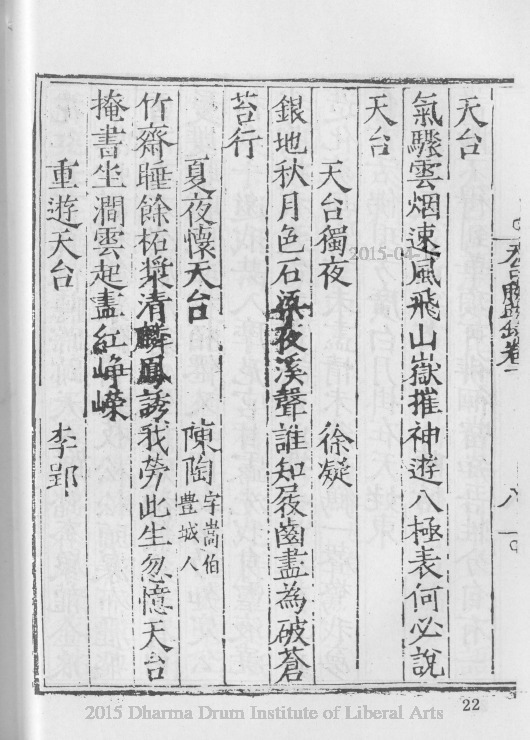 天台
氣驟雲烟速風飛山嶽摧神遊八極表何必說
天台
天台獨夜 徐凝
銀地秋月色石梁夜溪聲誰知屐齒盡為破蒼
苔行
夏夜懷天台 陳陶 字嵩伯 豊城人
竹齋睡餘柘漿清麟鳳誘我勞此生忽憶天台
掩書坐澗雲起盡紅崢嶸
重遊天台 李郢
天台勝蹟錄卷一
八
22
2015-04-
2015 Dharma Drum Institute of Liberal Arts